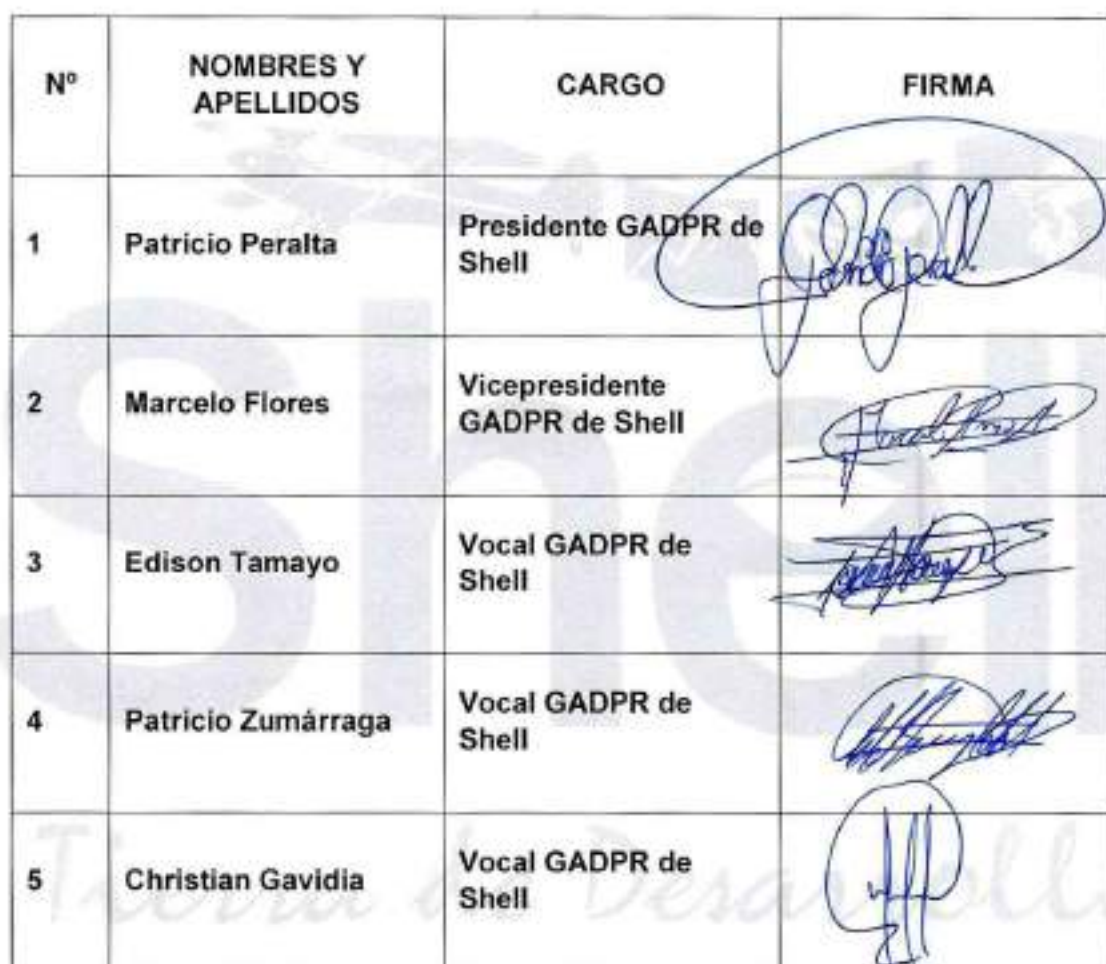 Nº
NOMBRES Y
APELLIDOS
CARGO
FIRMA
1
Patricio Peralta
Presidente GADPR de
Shell
2
Marcelo Flores
Vicepresidente
GADPR de Shell
3
Edison Tamayo
Vocal GADPR de
Shell
4
Patricio Zumárraga
Vocal GADPR de
Shell
5
Christian Gavidia
Vocal GADPR de
Shell
Shell
Tierra de Desarroll